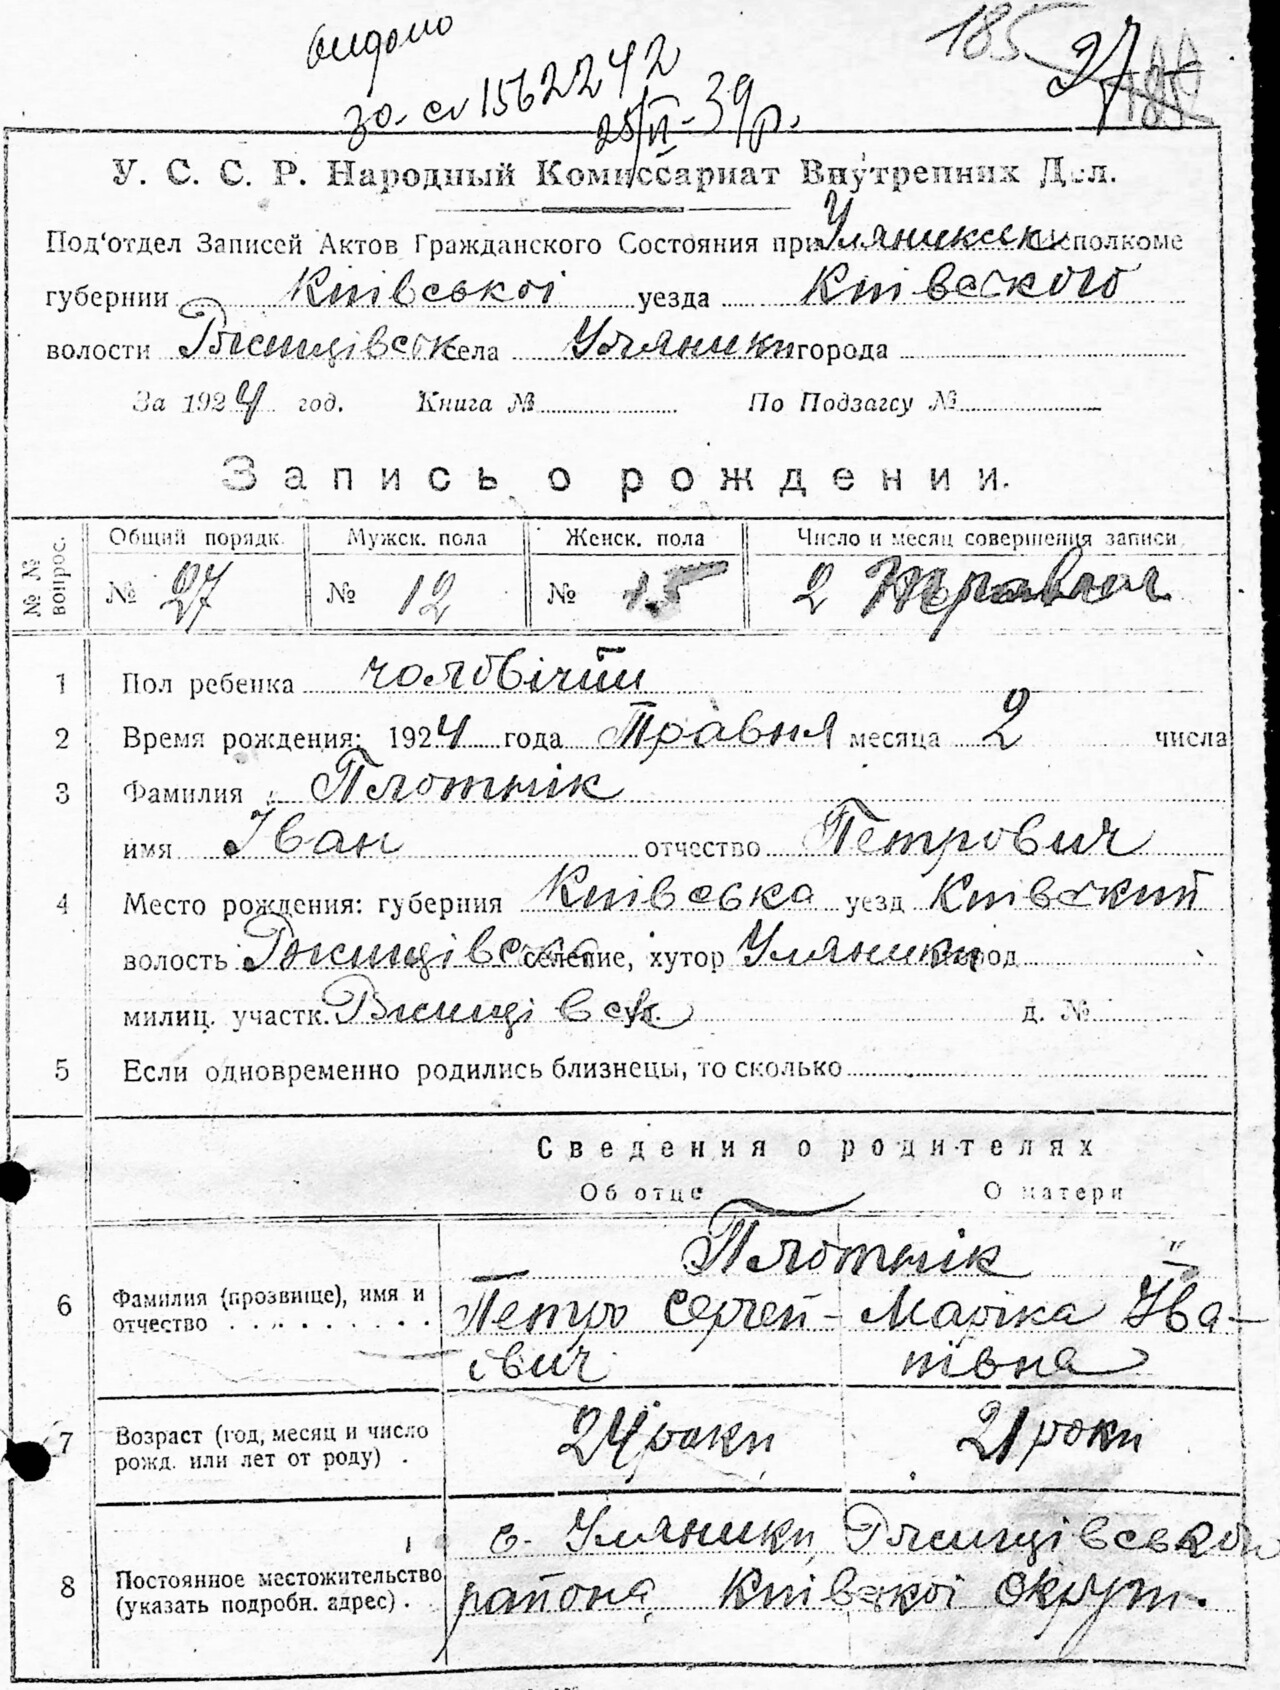 видано
за № 1562242
25/VI-39р.
185 27
У. С. С. Р. Народный Комиссариат Внутренних Дел.
Под'отдел Записей Актов Гражданского Состояния при Уляникськ Исполкоме
губернии Київської уезда Київского
волости Ржищівськ села Уляники города
За 1924 год. Книга № По Подзагсу №
Запись о рождении.
№ № вопрос. Общий порядк. Мужск. пола Женск. пола Число и месяц совершения записи
№ 27 № 12 № 15 2 Травня
1 Пол ребенка чоловічий
2 Время рождения: 1924 года Травня месяца 2 числа
3 Фамилия Плотнік
имя Іван отчество Петрович
4 Место рождения: губерния Київська уезд Київский
волость Ржищівська селение, хутор Уляники город
милиц. участк. Ржищівськ д. №
5 Если одновременно родились близнецы, то сколько
Сведения о родителях
Об отце О матери
Плотнік "
6 Фамилия (прозвище), имя и отчество . . . . . . . . . Петро Сергей- Маріка Іва-
евич нівна
7 Возраст (год, месяц и число рожд. или лет от роду) . 24 роки 21 роки
8 Постоянное местожительство (указать подробн. адрес) . с. Уляники, Ржищівського
района, Київської округ.